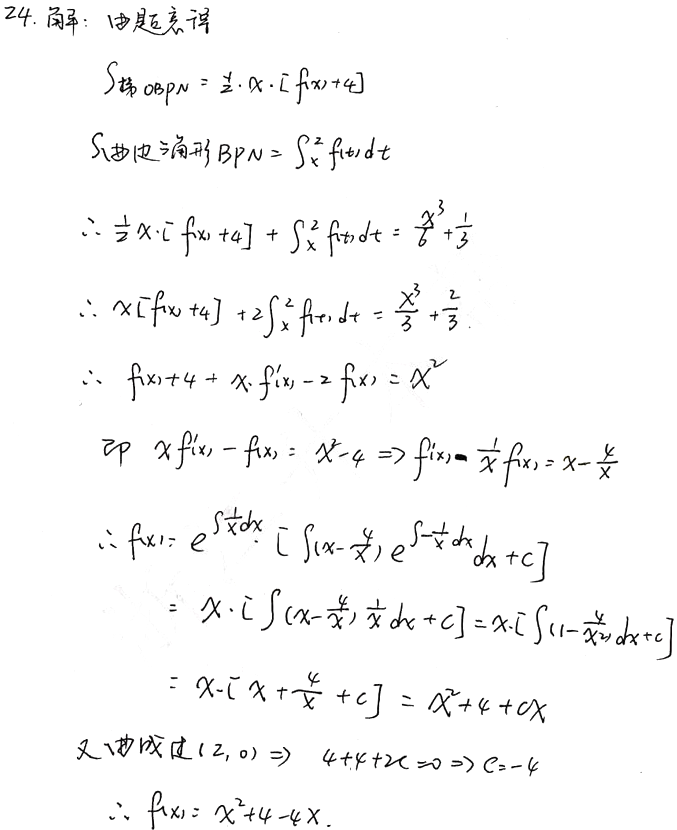 24. 解: 由题意得
S梯OBPN = 1/2 · x · [f(x)+4]
S曲边三角形BPN = ∫_x^2 f(t)dt
∴ 1/2 x·[f(x)+4] + ∫_x^2 f(t)dt = x³/6 + 1/3
∴ x[f(x)+4] + 2∫_x^2 f(t)dt = x³/3 + 2/3.
∴ f(x)+4 + x·f'(x) - 2f(x) = x²
即 xf'(x) - f(x) = x²-4 ⇒ f'(x) - 1/x f(x) = x - 4/x
∴ f(x) = e^{∫1/x dx} · [∫(x-4/x) e^{∫-1/x dx} dx + c]
= x·[∫(x-4/x) 1/x dx + c] = x·[∫(1-4/x²)dx + c]
= x·[x + 4/x + c] = x²+4+cx
又曲线过(2,0) ⇒ 4+4+2c=0 ⇒ c=-4
∴ f(x) = x²+4-4x.